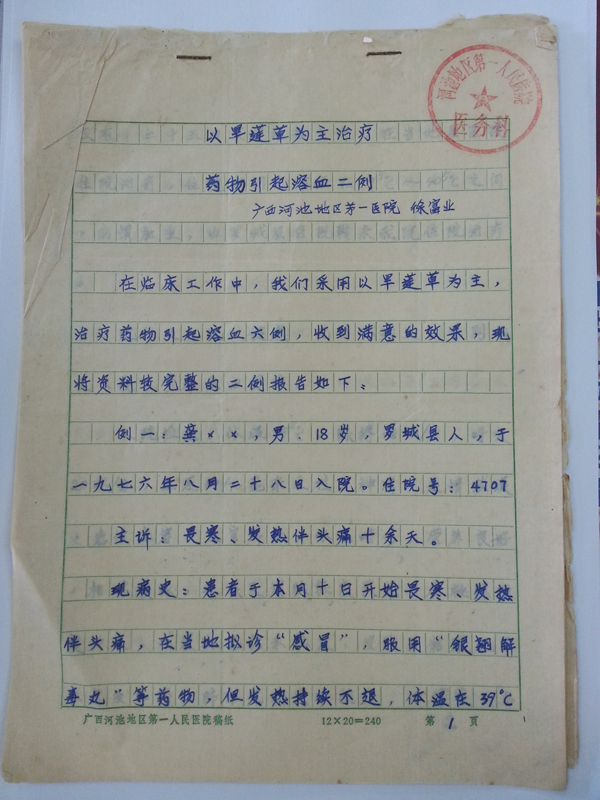 河池地区第一人民医院
医务科
以旱莲草为主治疗
药物引起溶血二例
广西河池地区第一医院 徐富业
在临床工作中，我们采用以旱莲草为主，
治疗药物引起溶血六例，收到满意的效果，现
将资料较完整的二例报告如下。
例一：龚××，男．18岁，罗城县人，于
一九七六年八月二十八日入院。住院号：4707
主诉：畏寒、发热伴头痛十余天。
现病史：患者于本月十日开始畏寒、发热
伴头痛，在当地拟诊“感冒”，服用“银翘解
毒丸”等药物，但发热持续不退，体温在39°C
广西河池地区第一人民医院稿纸 12×20=240 第 1 页